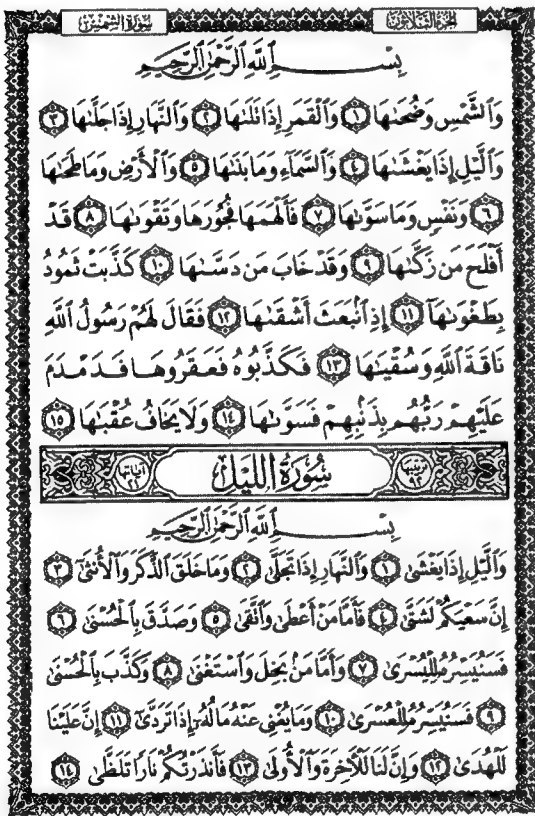 سُورَةُ الشَّمْسِ الجُزْءُ الثَّلَاثُونَ
بِسْمِ ٱللَّهِ ٱلرَّحْمَٰنِ ٱلرَّحِيمِ
وَٱلشَّمْسِ وَضُحَىٰهَا ١ وَٱلْقَمَرِ إِذَا تَلَىٰهَا ٢ وَٱلنَّهَارِ إِذَا جَلَّىٰهَا ٣
وَٱلَّيْلِ إِذَا يَغْشَىٰهَا ٤ وَٱلسَّمَآءِ وَمَا بَنَىٰهَا ٥ وَٱلْأَرْضِ وَمَا طَحَىٰهَا
٦ وَنَفْسٍ وَمَا سَوَّىٰهَا ٧ فَأَلْهَمَهَا فُجُورَهَا وَتَقْوَىٰهَا ٨ قَدْ
أَفْلَحَ مَن زَكَّىٰهَا ٩ وَقَدْ خَابَ مَن دَسَّىٰهَا ١٠ كَذَّبَتْ ثَمُودُ
بِطَغْوَىٰهَآ ١١ إِذِ ٱنۢبَعَثَ أَشْقَىٰهَا ١٢ فَقَالَ لَهُمْ رَسُولُ ٱللَّهِ
نَاقَةَ ٱللَّهِ وَسُقْيَٰهَا ١٣ فَكَذَّبُوهُ فَعَقَرُوهَا فَدَمْدَمَ
عَلَيْهِمْ رَبُّهُم بِذَنۢبِهِمْ فَسَوَّىٰهَا ١٤ وَلَا يَخَافُ عُقْبَٰهَا ١٥
ترتيبها ٩٢ سُورَةُ اللَّيْلِ آياتها ٢١
بِسْمِ ٱللَّهِ ٱلرَّحْمَٰنِ ٱلرَّحِيمِ
وَٱلَّيْلِ إِذَا يَغْشَىٰ ١ وَٱلنَّهَارِ إِذَا تَجَلَّىٰ ٢ وَمَا خَلَقَ ٱلذَّكَرَ وَٱلْأُنثَىٰٓ ٣
إِنَّ سَعْيَكُمْ لَشَتَّىٰ ٤ فَأَمَّا مَنْ أَعْطَىٰ وَٱتَّقَىٰ ٥ وَصَدَّقَ بِٱلْحُسْنَىٰ ٦
فَسَنُيَسِّرُهُۥ لِلْيُسْرَىٰ ٧ وَأَمَّا مَنۢ بَخِلَ وَٱسْتَغْنَىٰ ٨ وَكَذَّبَ بِٱلْحُسْنَىٰ
٩ فَسَنُيَسِّرُهُۥ لِلْعُسْرَىٰ ١٠ وَمَا يُغْنِى عَنْهُ مَالُهُۥٓ إِذَا تَرَدَّىٰٓ ١١ إِنَّ عَلَيْنَا
لَلْهُدَىٰ ١٢ وَإِنَّ لَنَا لَلْءَاخِرَةَ وَٱلْأُولَىٰ ١٣ فَأَنذَرْتُكُمْ نَارًا تَلَظَّىٰ ١٤